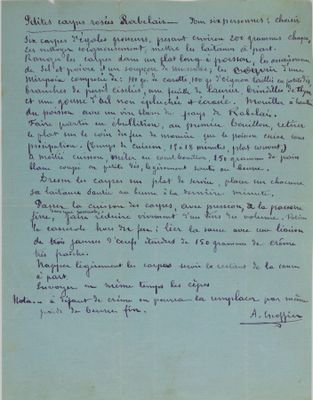 Petites carpes rosées Rabelais. — Pour six personnes: choisir
Six carpes d'égales grosseurs, pesant environ 200 grammes chaque,
Les nettoyer soigneusement, mettre les laitances à part.
Ranger les carpes dans un plat long à poisson, les assaisonner
de sel et poivre et d'un soupçon de muscade, les couvrir d'une
Mirepoix composée de: 100 gr. de carotte, 100 gr. d'oignon taillés en petits dés,
branches de persil ciselées, une feuille de laurier, brindille de thym
et une gousse d'ail non épluchée & écrasée. Mouiller à hauteur
du poisson avec un vin blanc du pays de Rabelais.
Faire partir en ébullition, au premier bouillon, retirer
le plat sur le coin du feu de manière que le poisson cuise sans
précipitation. (Temps de cuisson, 15 à 18 minutes, plat couvert)
à moitié cuisson, mettre en court-bouillon 150 grammes de
blanc coupé en petits dés, légèrement sauté au beurre.
Dresser les carpes sur plat de service, placer sur chacune
sa laitance sautée au beurre à la dernière minute.
Passer la cuisson des carpes, avec pression, à la passoire
fine, faire réduire vivement d'un tiers de volume. Retirer
la casserole hors du feu; lier la sauce avec une liaison
de trois jaunes d'œufs étendus de 150 grammes de crème
très fraîche.
Napper légèrement les carpes servir le restant de la sauce
à part.
Envoyer en même temps les cèpes
Nota. — à défaut de crème on pourra la remplacer par même
poids de beurre fin.
A. Escoffier